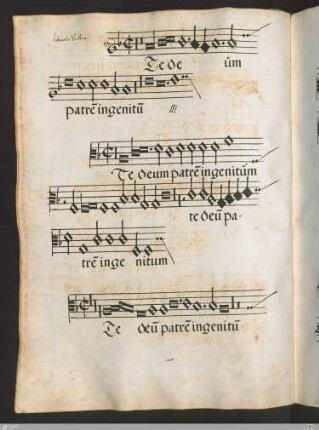 Te de um
patrē ingenitū
Te deum patrē ingenitum
te deū pa-
trē inge nitum
Te deū patrē ingenitū